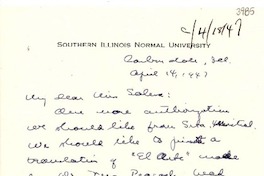 3985
c/4/18/47
SOUTHERN ILLINOIS NORMAL UNIVERSITY
Carbondale, Ill.
April 14, 1947
My dear Miss
One more authorization
we should like from Srta. Mistral.
We should like to print a
translation of "El made